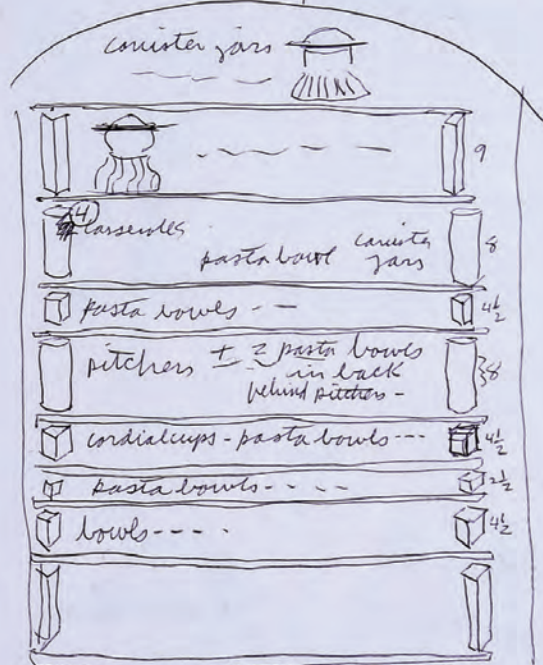 canister jars
9
4 casseroles
pasta bowl canister jars 8
pasta bowls -- 4½
pitchers + 2 pasta bowls
in back
behind pitchers - 8
cordial cups - pasta bowls --- 4½
pasta bowls - - - - 2½
bowls --- - 4½